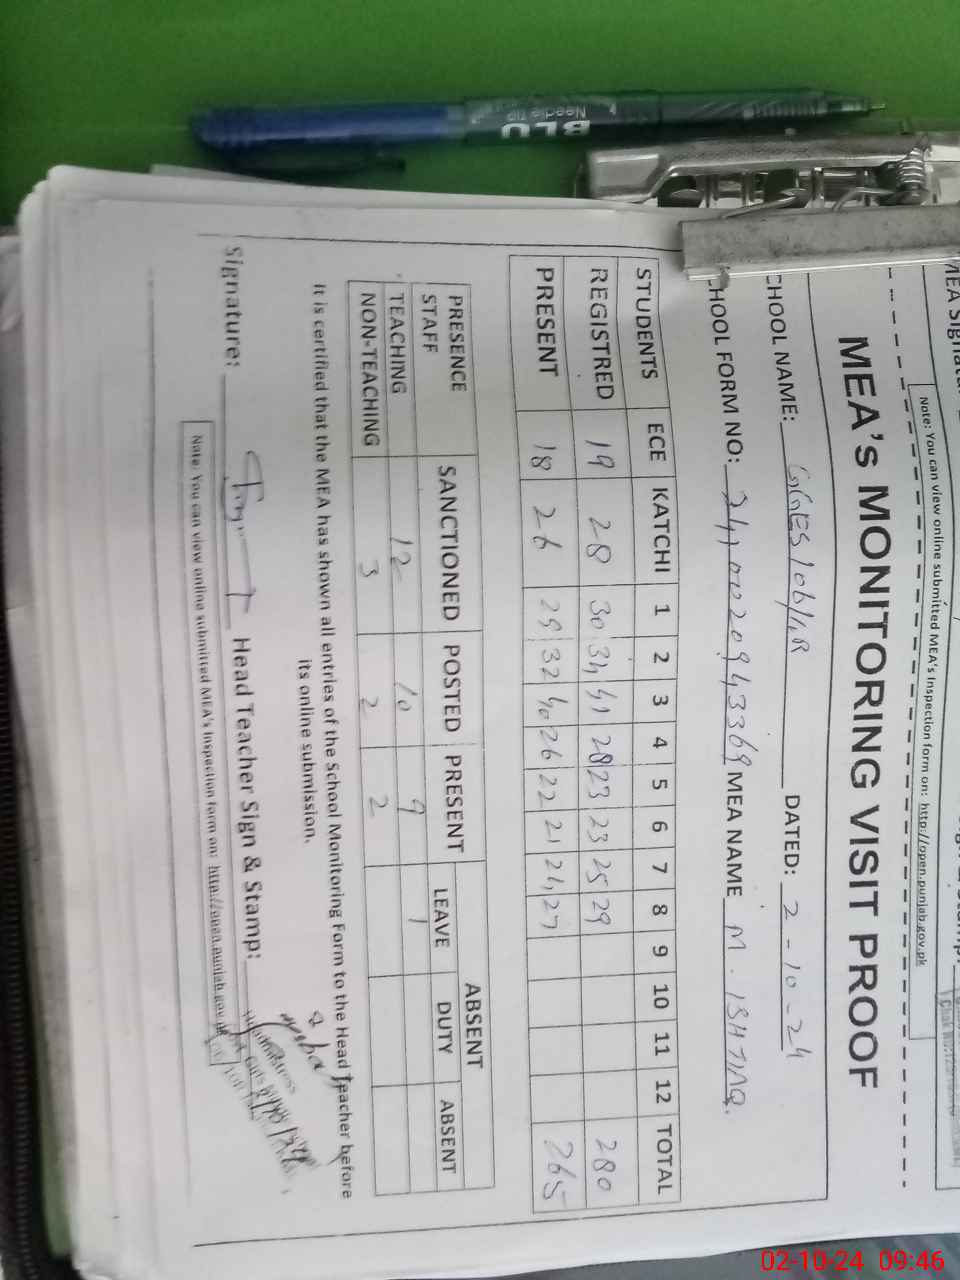 MEA Signatu
Note: You can view online submitted MEA's Inspection form on: http://open.punjab.gov.pk
MEA's MONITORING VISIT PROOF
CHOOL NAME: GGES 106/4R DATED: 2-10-24
HOOL FORM NO: MEA NAME M. ISHTIAQ.
STUDENTS ECE KATCHI 1 2 3 4 5 6 7 8 9 10 11 12 TOTAL
REGISTRED 19 28 30 34 41 28 23 23 25 29 280
PRESENT 18 26 29 32 40 26 22 21 24 27 265
PRESENCE ABSENT
STAFF SANCTIONED POSTED PRESENT LEAVE DUTY ABSENT
TEACHING 12 10 9 1
NON-TEACHING 3 2 2
It is certified that the MEA has shown all entries of the School Monitoring Form to the Head Teacher before
its online submission.
Signature: Head Teacher Sign & Stamp:
Note: You can view online submitted MEA's Inspection form on: http://open.punjab.gov.pk
BLO
Needle Tip
02-10-24 09:46